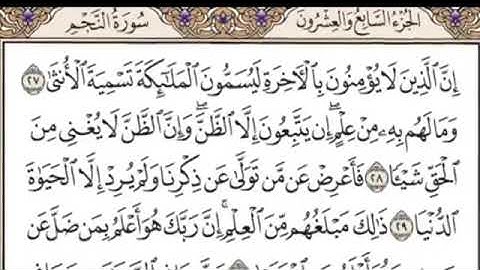 الجُزْءُ السَّابِعُ وَالعِشْرُونَ سُورَةُ النَّجْمِ
إِنَّ الَّذِينَ لَا يُؤْمِنُونَ بِالْآخِرَةِ لَيُسَمُّونَ الْمَلَائِكَةَ تَسْمِيَةَ الْأُنثَىٰ ٢٧
وَمَا لَهُم بِهِ مِنْ عِلْمٍ ۖ إِن يَتَّبِعُونَ إِلَّا الظَّنَّ ۖ وَإِنَّ الظَّنَّ لَا يُغْنِي مِنَ
الْحَقِّ شَيْئًا ٢٨ فَأَعْرِضْ عَن مَّن تَوَلَّىٰ عَن ذِكْرِنَا وَلَمْ يُرِدْ إِلَّا الْحَيَاةَ
الدُّنْيَا ٢٩ ذَٰلِكَ مَبْلَغُهُم مِّنَ الْعِلْمِ ۚ إِنَّ رَبَّكَ هُوَ أَعْلَمُ بِمَن ضَلَّ عَن